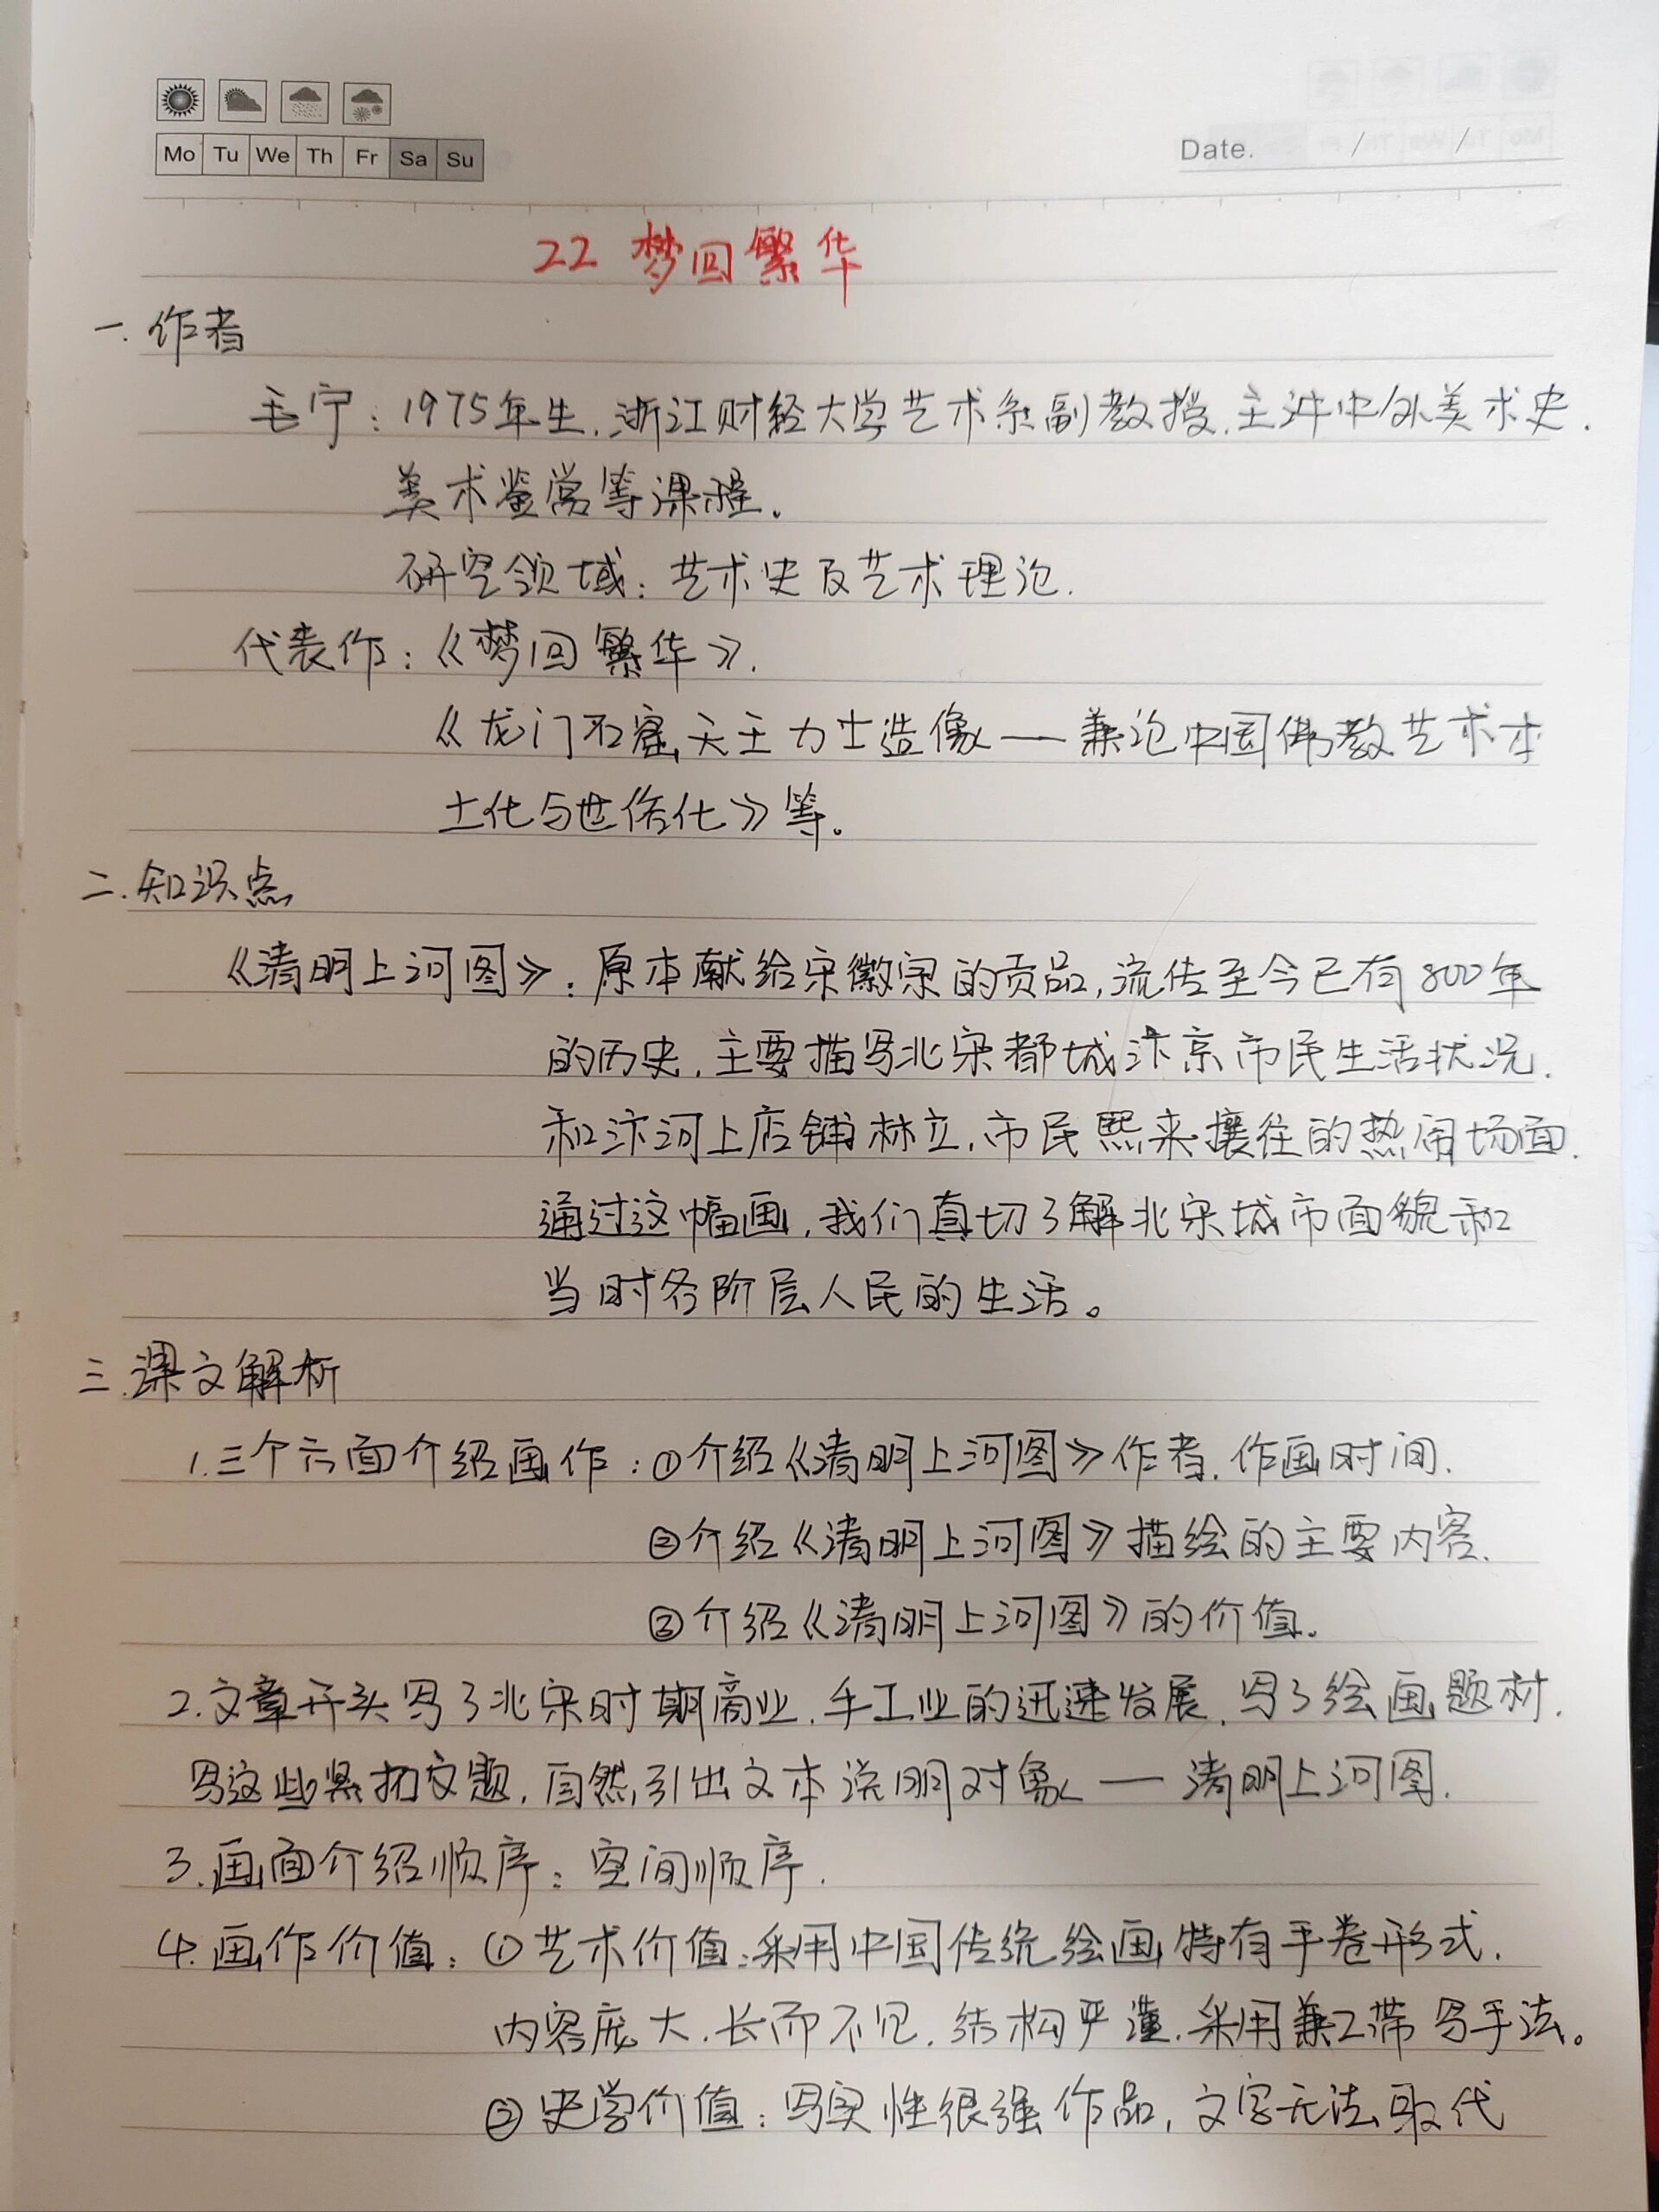 Mo Tu We Th Fr Sa Su
Date. / /
22 梦回繁华
一.作者
毛宁：1975年生.浙江财经大学艺术系副教授.主讲中外美术史.
美术鉴赏等课程。
研究领域：艺术史及艺术理论.
代表作：《梦回繁华》.
《龙门石窟天王力士造像——兼论中国佛教艺术本
土化与世俗化》等。
二.知识点
《清明上河图》：原本献给宋徽宗的贡品,流传至今已有800年
的历史.主要描写北宋都城汴京市民生活状况.
和汴河上店铺林立.市民熙来攘往的热闹场面.
通过这幅画,我们真切了解北宋城市面貌和
当时各阶层人民的生活。
三.课文解析
1.三个方面介绍画作：①介绍《清明上河图》作者.作画时间.
②介绍《清明上河图》描绘的主要内容.
③介绍《清明上河图》的价值.
2.文章开头写了北宋时期商业.手工业的迅速发展.写了绘画题材.
写这些紧扣文题,自然引出文本说明对象——清明上河图.
3.画面介绍顺序：空间顺序.
4.画作价值：①艺术价值:采用中国传统绘画特有手卷形式.
内容庞大.长而不冗.结构严谨.采用兼工带写手法。
②史学价值：写实性很强作品,文字无法取代